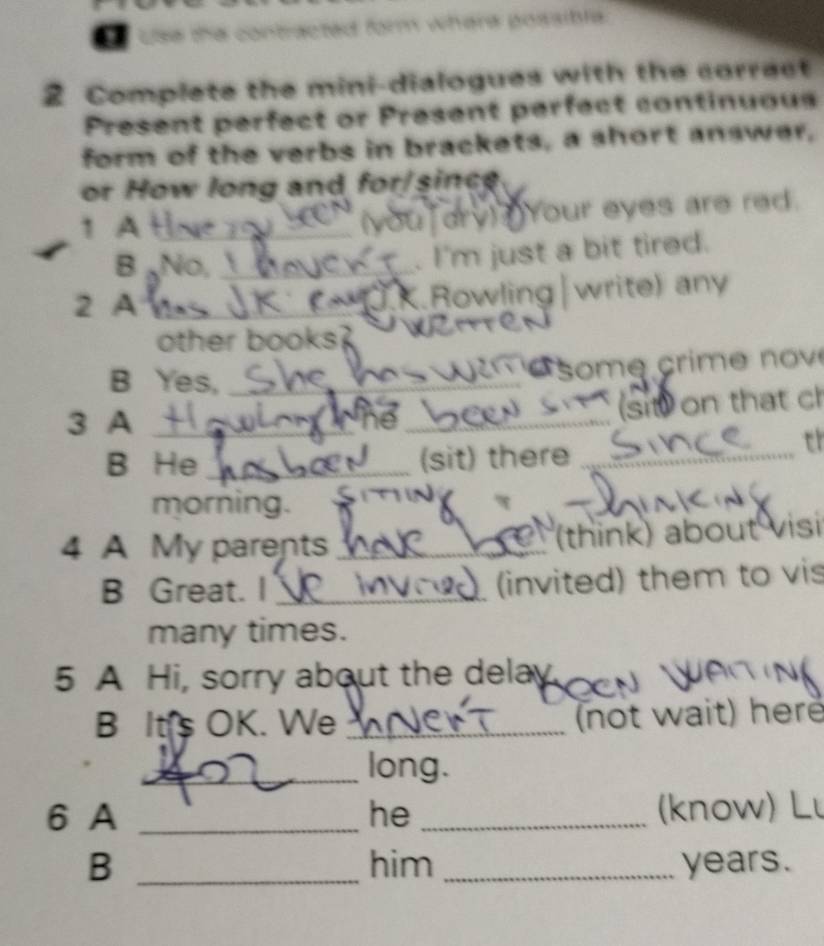 Use the contracted form where possible.
2 Complete the mini-dialogues with the correct
Present perfect or Present perfect continuous
form of the verbs in brackets, a short answer,
or How long and for/since.
1 A Have you been (you | cry)? Your eyes are red.
B No, I haven't. I'm just a bit tired.
2 A has JK J.K. Rowling | write) any
written
other books?
B Yes, She has written some crime nove
3 A How long has he been sitting (sit) on that ch
B He has been (sit) there since th
siting
morning.
thinking
4 A My parents have been (think) about visi
B Great. I 've invited (invited) them to vis
many times.
5 A Hi, sorry about the delay.
been waiting
B It's OK. We haven't (not wait) here
for long.
6 A he (know) Lu
B him years.